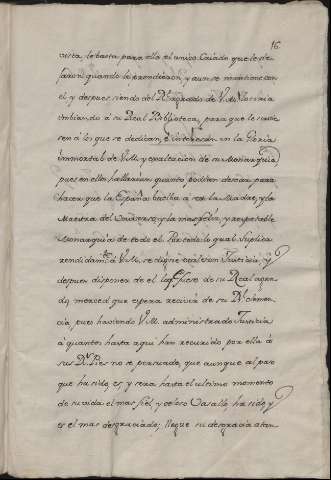 16
vista le basta para ello el unico Criado que le de-
xaron quando le prendieron, y aun se mantiene con
el y despues siendo del Rl. agrado de V.M. los iria
embiando à su Real Biblioteca, para que le sirvie
sen à los que se dedican, è interesan en la Gloria
immortal de V.M. y exaltacion de su Monarquia
pues en ellos hallarian quanto podrian desear para
hacer que la España buelba à ser la Madre, y la
Maestra del Universo, y la mas feliz, y respetable
Monarquia de todo el. Por todo lo qual Suplica
rendidamte. à V.M. se digne hacerle en Justicia, y
despues disponer de el lo q. fuese de su Real agra-
do, merced que espera recivir de su Rl. Clemen-
cia, pues haviendo V.M. administrado Justicia
à quantos hasta aqui han recurrido por ella à
sus Rs. Pies no se persuade, que aunque al paso
que ha sido, es, y sera hasta el ultimo momento
de su vida el mas fiel, y celoso Vasallo, ha sido, y
es el mas desgraciado; llegue su desgracia à tan-